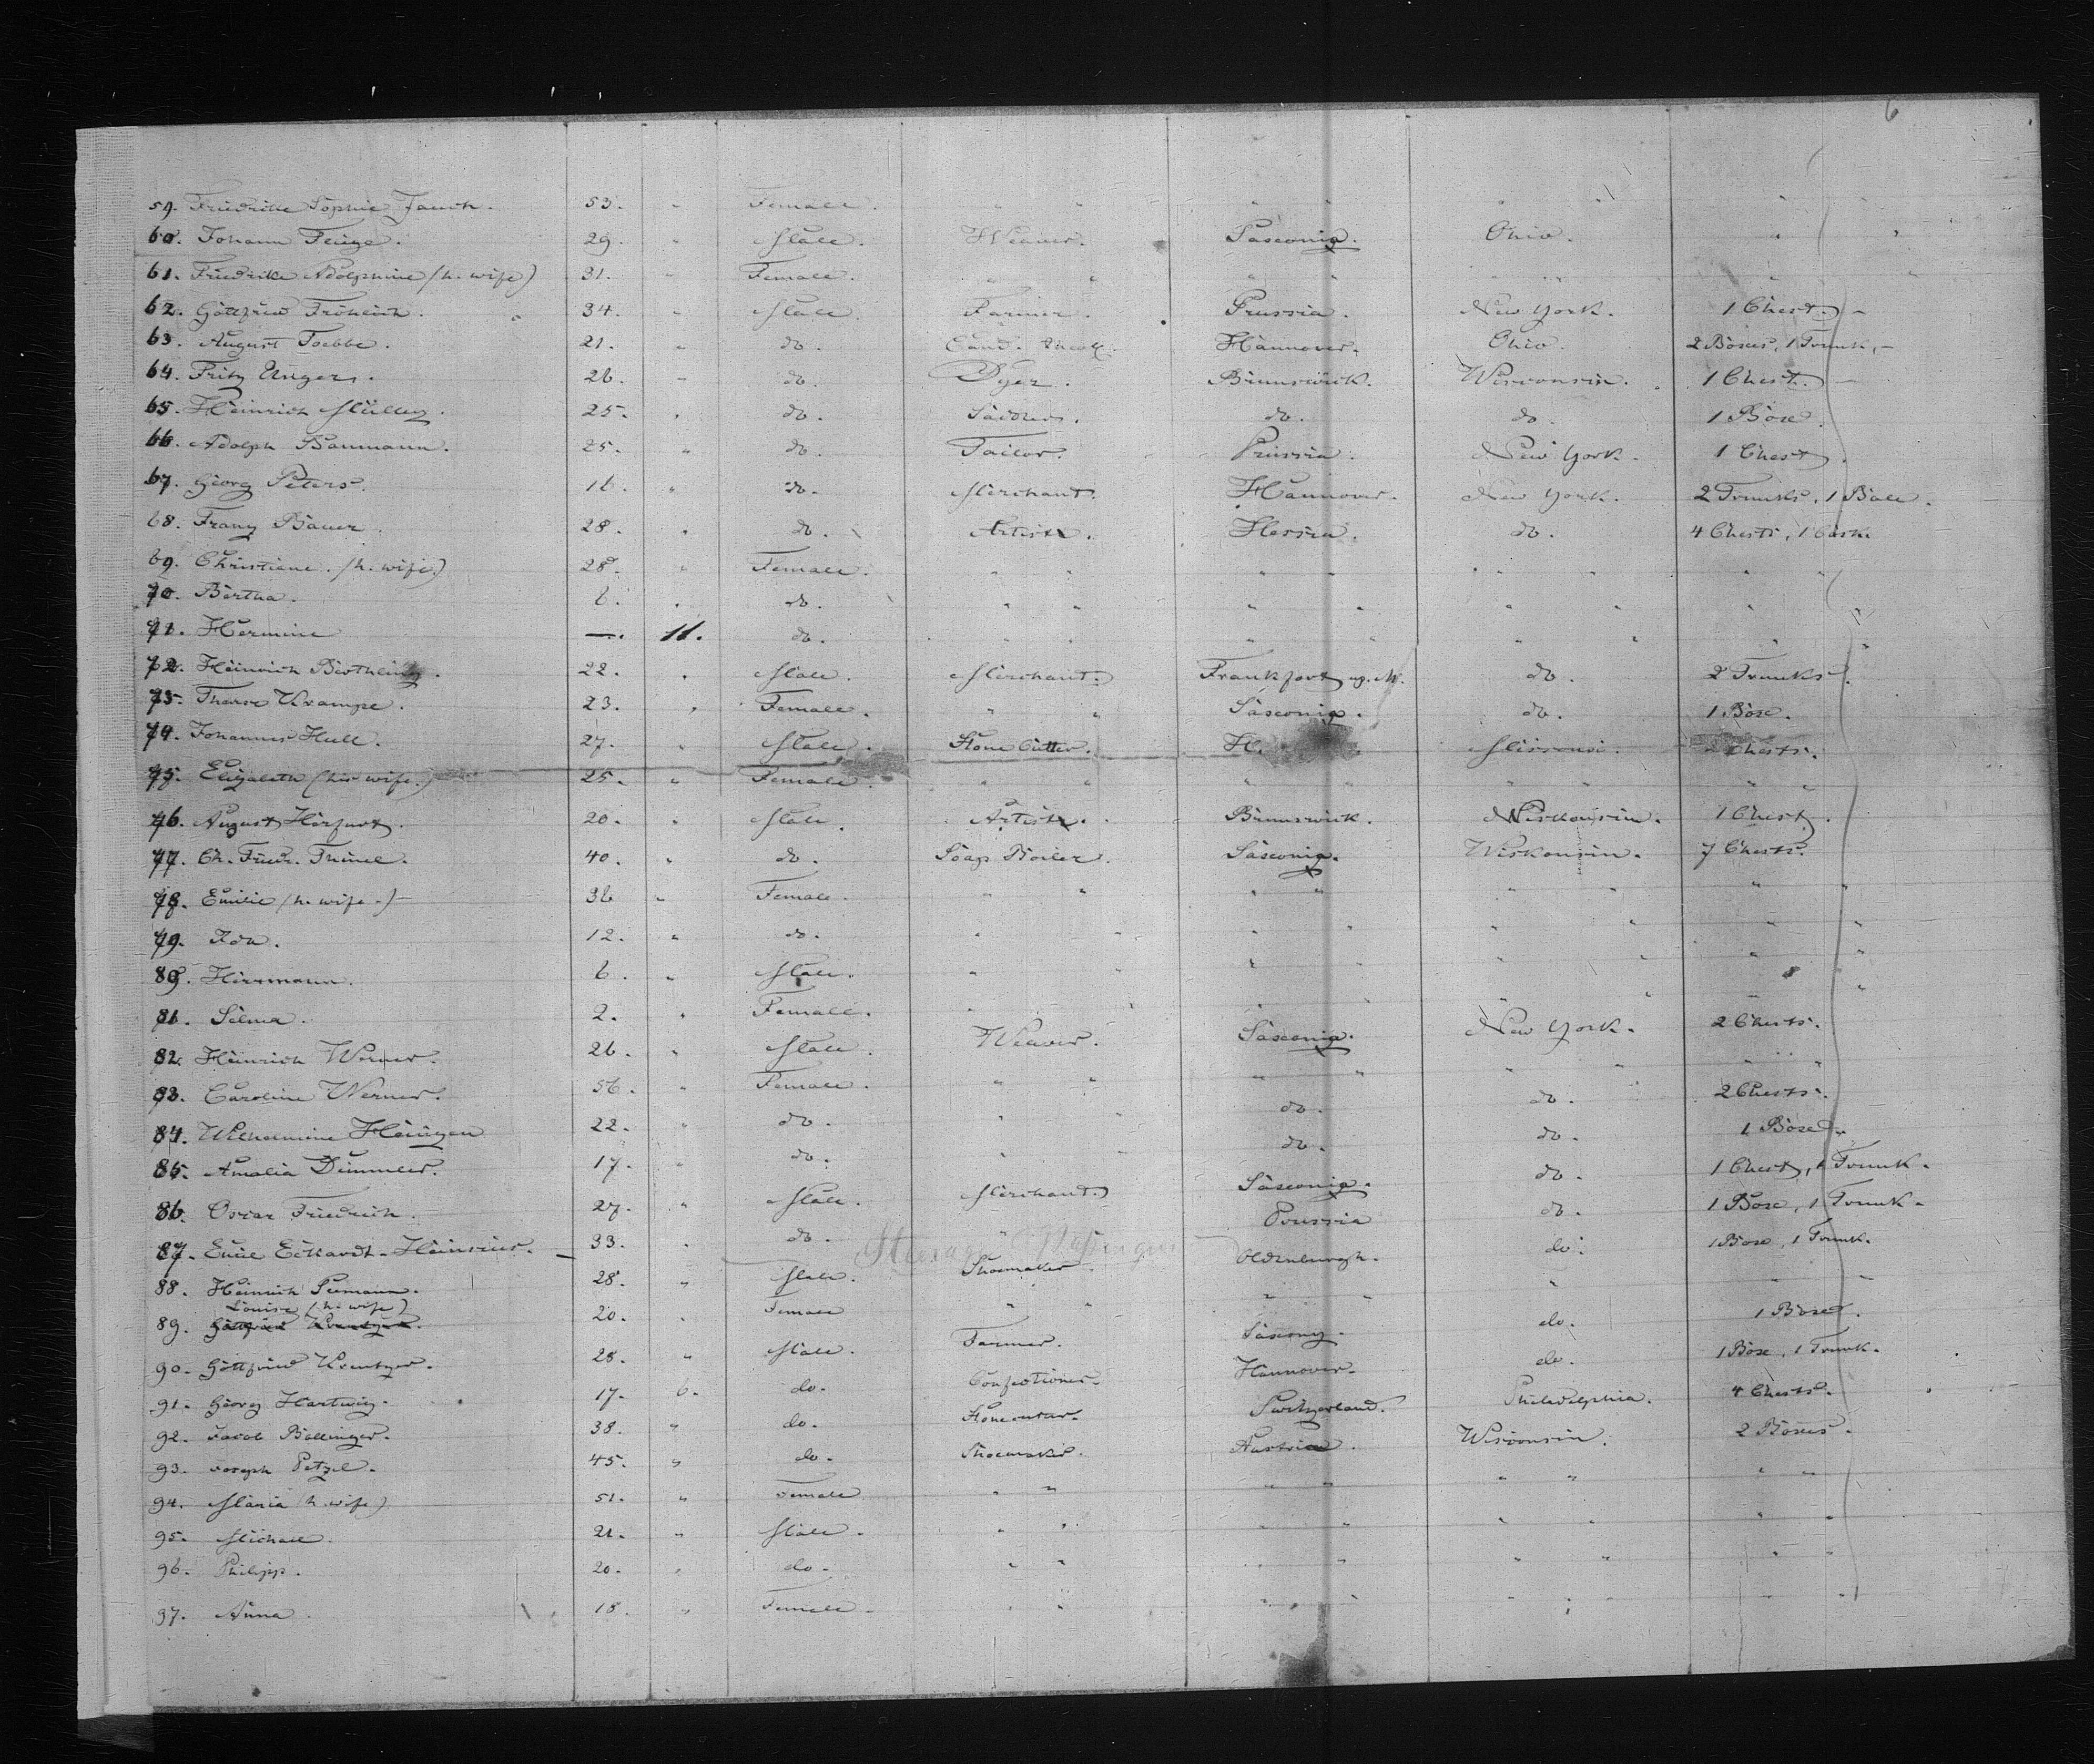 6
59. Friedrike Sophie Jauch. 53. " Female. " " " " " " " "
60. Johann Feuge. 29. " Male. Weaver. Saxonia. Ohio. " "
61. Friedrike Adolphine (h. wife) 31. " Female. " " " " " " " "
62. Gottfried Fröhlich. " 34. " Male. Farmer. Prussia. New York. 1 Chest. -
63. August Toebbe. 21. " do. Cand. theol. Hannover. Ohio. 2 Boxes, 1 Trunk, -
64. Fritz Ungers. 26. " do. Dyer. Brunswick. Wisconsin. 1 Chest. -
65. Heinrich Müller. 25. " do. Saddler. do. do. 1 Box.
66. Adolph Baumann. 25. " do. Tailor. Prussia. New York. 1 Chest.
67. Georg Peters. 16. " do. Merchant. Hannover. New York. 2 Trunks, 1 Bale.
68. Franz Bauer. 28. " do. Artist. Hessia. do. 4 Chests, 1 Cask.
69. Christiane. (h. wife.) 28. " Female. " " " " " " " "
70. Bertha. 6. " do. " " " " " " " "
71. Hermine —. 11. do. " " " " " " " "
72. Heinrich Berthling. 22. " Male. Merchant. Frankfort a. M. do. 2 Trunks.
73. Therese Krampe. 23. " Female. " " Saxonia. do. 1 Box.
74. Johannes Hull. 27. " Male. Stone Cutter. H. Missouri. 2 Chests.
75. Elizabeth (his wife.) 25. " Female. " " " " " " " "
76. August Hörfurt. 20. " Male. Artist. Brunswick. Wiskonsin. 1 Chest.
77. Ch. Friedr. Thinel. 40. " do. Soap Boiler. Saxonia. Wiskonsin. 7 Chests.
78. Emilie (h. wife.) 36 " Female. " " " " " " " "
79. Ida. 12. " do. " " " " " " " "
80. Herrmann. 6. " Male. " " " " " " " "
81. Selma. 2. " Female. " " " " " " " "
82. Heinrich Werner. 26. " Male. Weaver. Saxonia. New York. 2 Chests.
83. Caroline Werner. 56. " Female. " " " " " " " "
84. Wilhelmine Heinzen 22. " do. " " do. do. 2 Chests.
85. Amalia Dimmler. 17. " do. " " do. do. 1 Box.
86. Oscar Friedrich. 27. " Male. Merchant. Saxonia. do. 1 Chest, 1 Trunk.
87. Emil Eckardt-Heinrius. 33. " do. " Prussia do. 1 Box, 1 Trunk.
Steerage Passengers
88. Heinrich Seemann. 28. " Male. Shoemaker. Oldenburgh. do. 1 Box, 1 Trunk.
Louise (h. wife)
89. Gottfried Krentzer. 20. " Female " " " " " " "
90. Gottfried Krentzer. 28. " Male. Farmer. Saxony. do. 1 Box.
91. Georg Hartwig. 17. 6. do. Confectioner. Hannover. do. 1 Box, 1 Trunk.
92. Jacob Bollinger. 38. " do. Stonecutter. Switzerland. Philadelphia. 4 Chests.
93. Joseph Petzel. 45. " do. Shoemaker. Austria. Wisconsin. 2 Boxes.
94. Maria (h. wife) 51. " Female " " " " " " " "
95. Michael. 21. " Male. " " " " " " " "
96. Philipp. 20. " do. " " " " " " " "
97. Anna. 18. " Female. " " " " " " " "